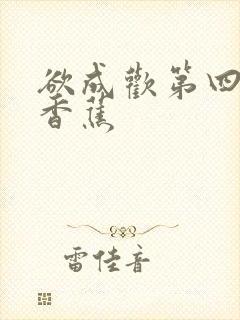 欲成歡第四
香蕉
雷佳音